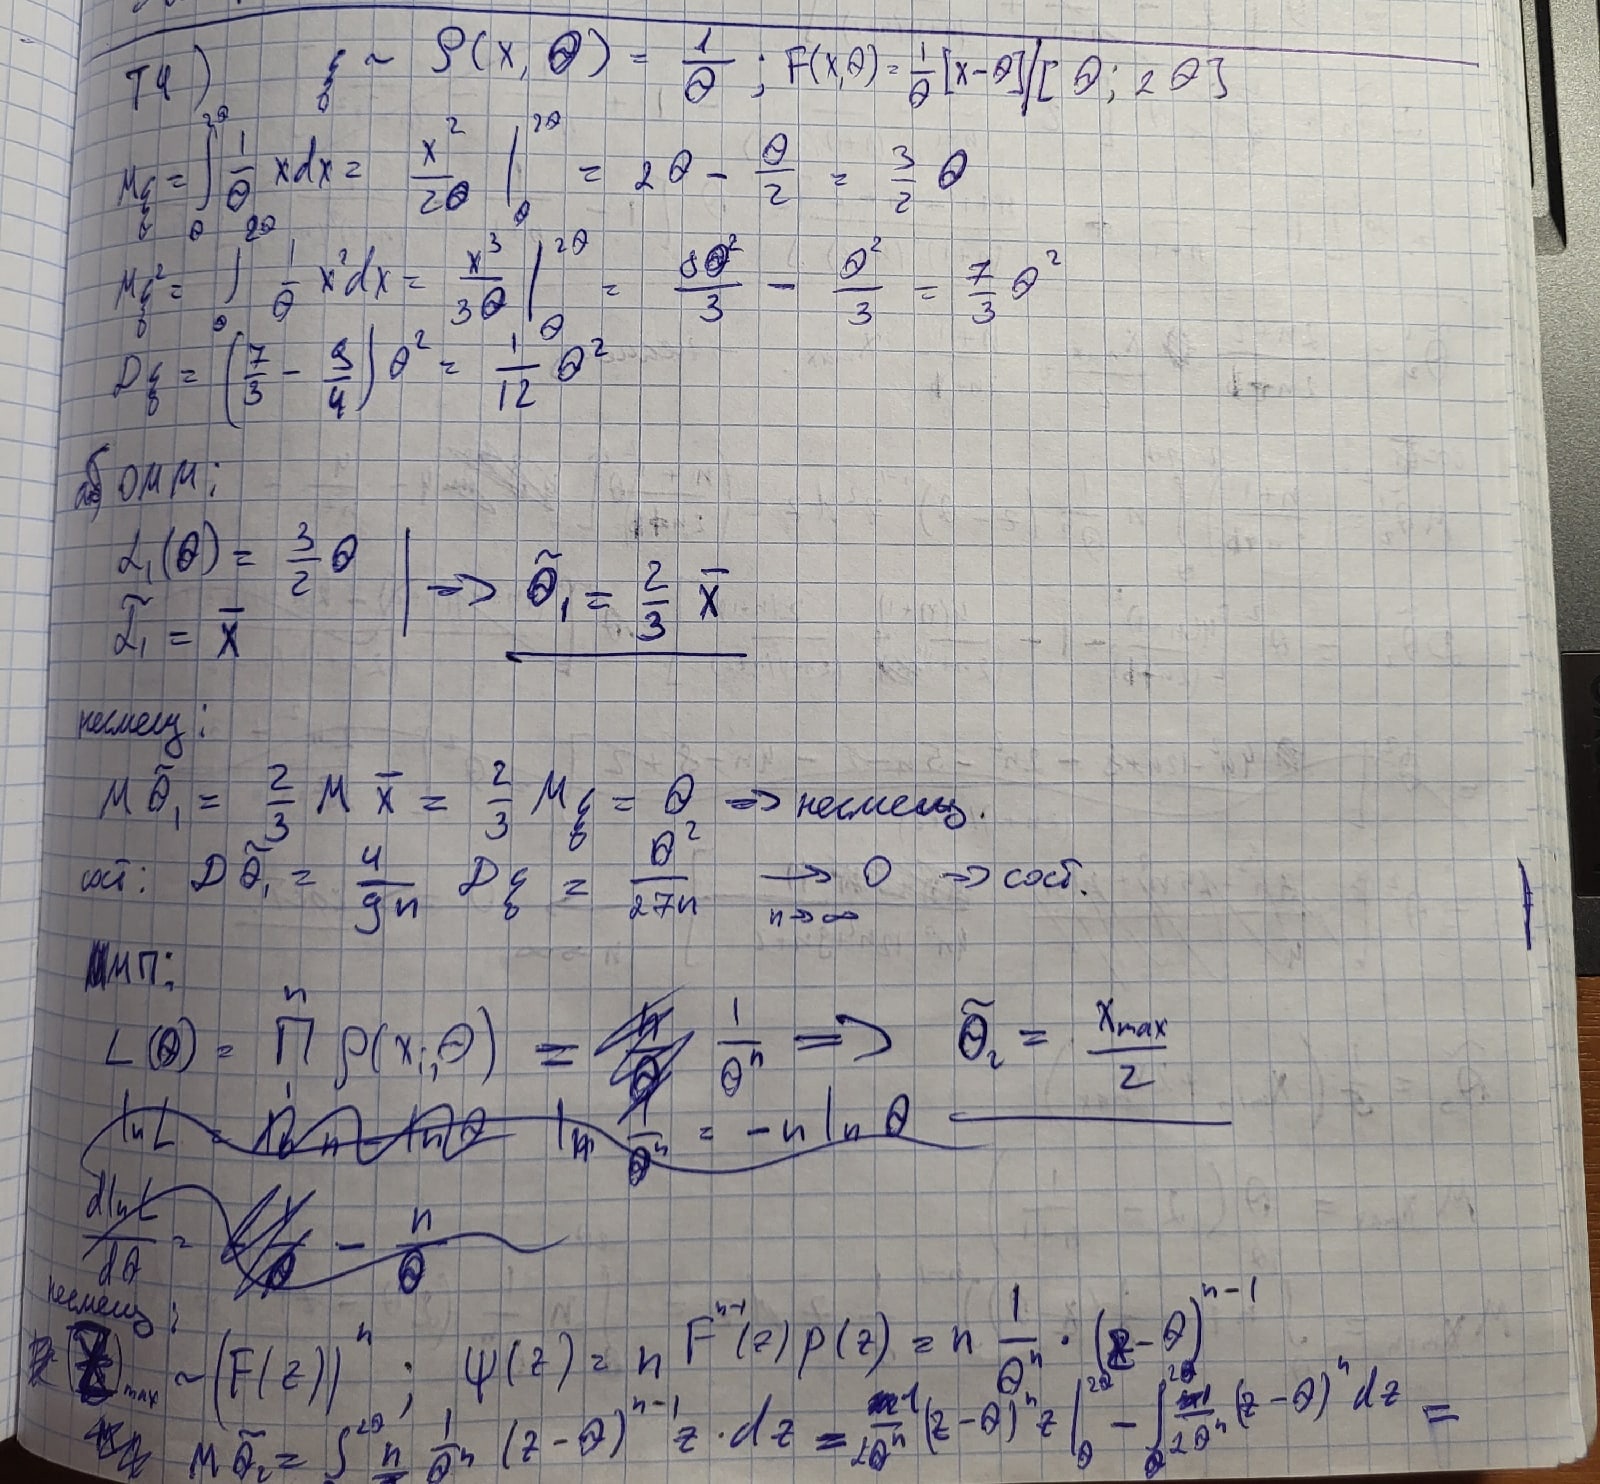 T4) ξ ~ ρ(x, θ) = 1/θ ; F(x,θ) = 1/θ [x-θ] / [θ; 2θ]
Mξ = ∫_θ^{2θ} 1/θ x dx = x²/2θ |_θ^{2θ} = 2θ - θ/2 = 3/2 θ
Mξ² = ∫_θ^{2θ} 1/θ x² dx = x³/3θ |_θ^{2θ} = 8θ²/3 - θ²/3 = 7/3 θ²
Dξ = (7/3 - 9/4) θ² = 1/12 θ²
ОММ:
α₁(θ) = 3/2 θ
α̃₁ = x̄ | => θ̃₁ = 2/3 x̄
несмещ:
Mθ̃₁ = 2/3 M x̄ = 2/3 Mξ = θ => несмещ.
сост: Dθ̃₁ = 4/9n Dξ = θ²/27n → 0 n→∞ => сост.
ММП:
L(θ) = ∏_1^n ρ(x_i, θ) = 1/θⁿ => θ̃₂ = x_max/2
ln L = ln 1/θⁿ = -n ln θ
d ln L/dθ = - n/θ
несмещ:
max ~ (F(z))ⁿ ; ψ(z) = n F^{n-1}(z) p(z) = n 1/θⁿ · (z-θ)^{n-1}
Mθ̃₂ = ∫^{2θ} n 1/θⁿ (z-θ)^{n-1} z · dz = 1/2θⁿ (z-θ)ⁿ z |_θ^{2θ} - ∫_θ^{2θ} 1/2θⁿ (z-θ)ⁿ dz =